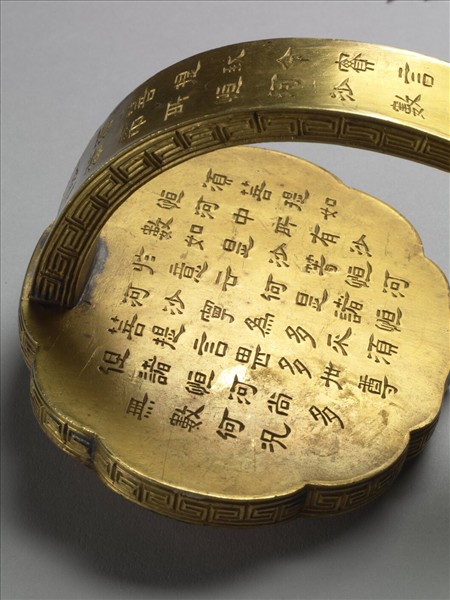 菩提我今實言
所恒河沙數
須菩提如
恒河中所有沙
數如是沙等恒河
於意云何是諸恒
河沙寧為多不須
菩提言甚多世尊
但諸恒河尚多
無數何況